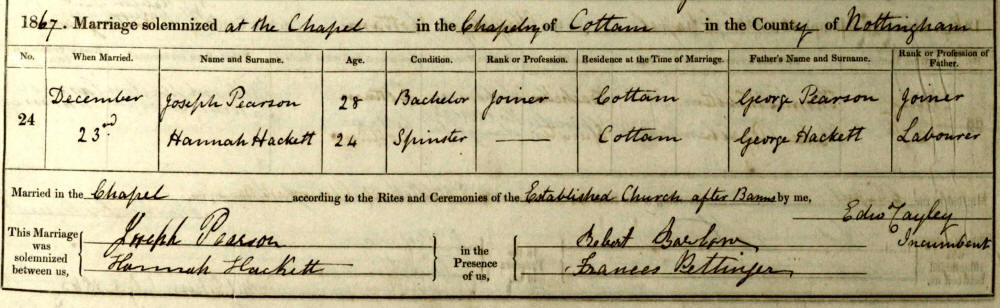 1867. Marriage solemnized at the Chapel in the Chapelry of Cottam in the County of Nottingham
No. When Married. Name and Surname. Age. Condition. Rank or Profession. Residence at the Time of Marriage. Father's Name and Surname. Rank or Profession of Father.
24 December 23rd
Joseph Pearson 28 Bachelor Joiner Cottam George Pearson Joiner
Hannah Hackett 24 Spinster — Cottam George Hackett Labourer
Married in the Chapel according to the Rites and Ceremonies of the Established Church after Banns by me,
Tayley
Incumbent
This Marriage was solemnized between us,
Joseph Pearson
Hannah Hackett
in the Presence of us,
Robert Barlow
Frances Bettinger